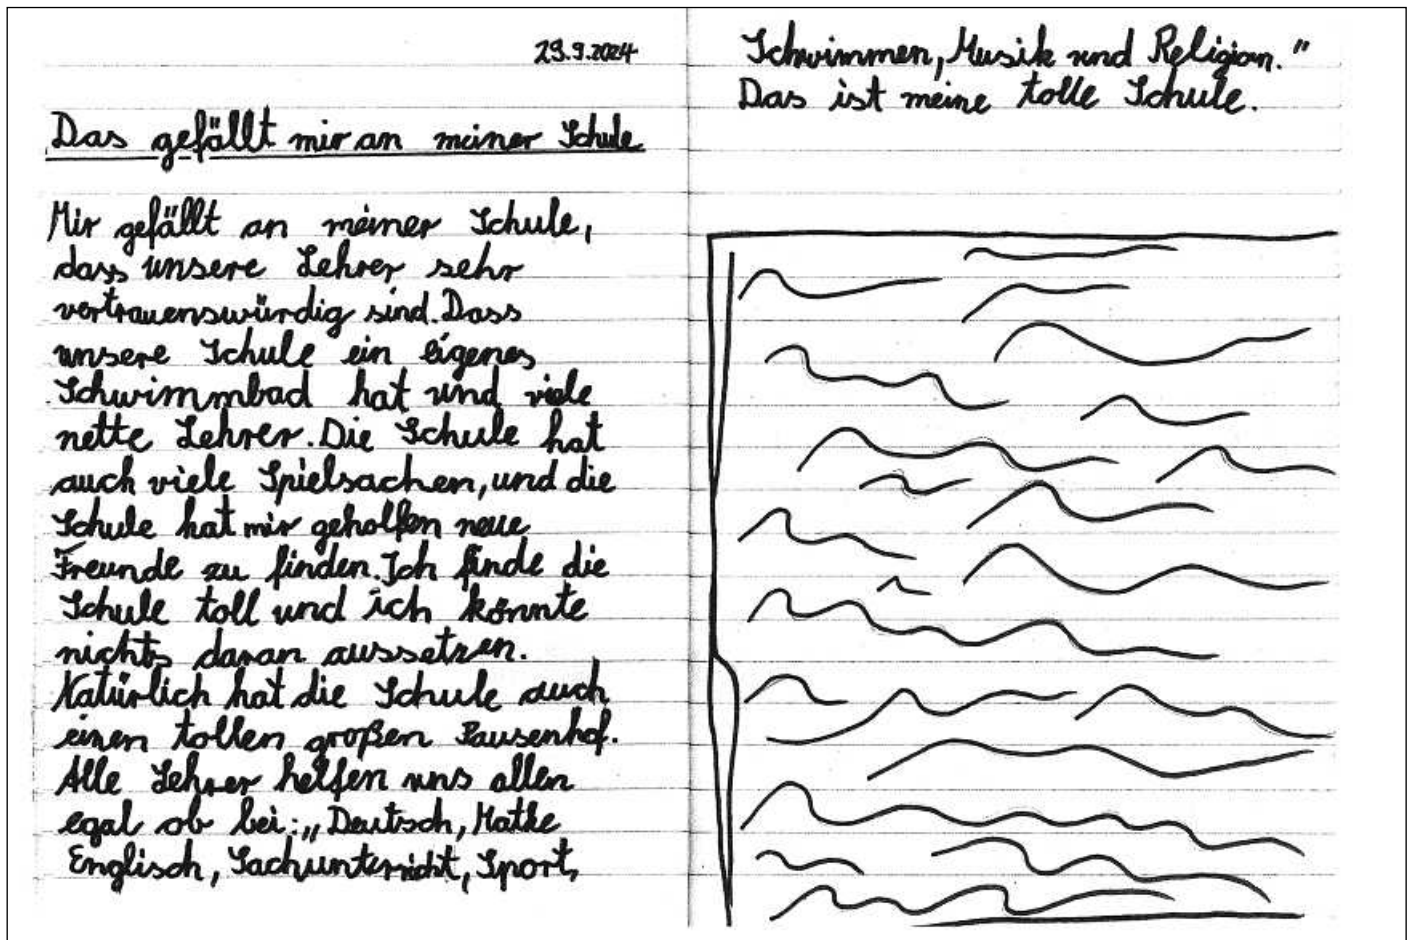 29.9.2024
Das gefällt mir an meiner Schule
Mir gefällt an meiner Schule,
dass unsere Lehrer sehr
vertrauenswürdig sind. Dass
unsere Schule ein eigenes
Schwimmbad hat und viele
nette Lehrer. Die Schule hat
auch viele Spielsachen, und die
Schule hat mir geholfen neue
Freunde zu finden. Ich finde die
Schule toll und ich könnte
nichts daran aussetzen.
Natürlich hat die Schule auch
einen tollen großen Pausenhof.
Alle Lehrer helfen uns allen
egal ob bei: „Deutsch, Mathe
Englisch, Sachunterricht, Sport,
Schwimmen, Musik und Religion."
Das ist meine tolle Schule.